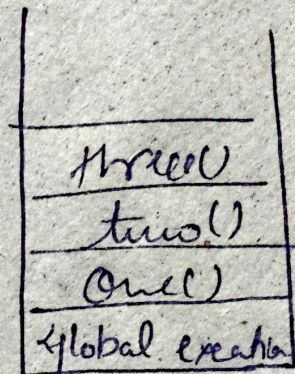 three()
two()
One()
Global execution